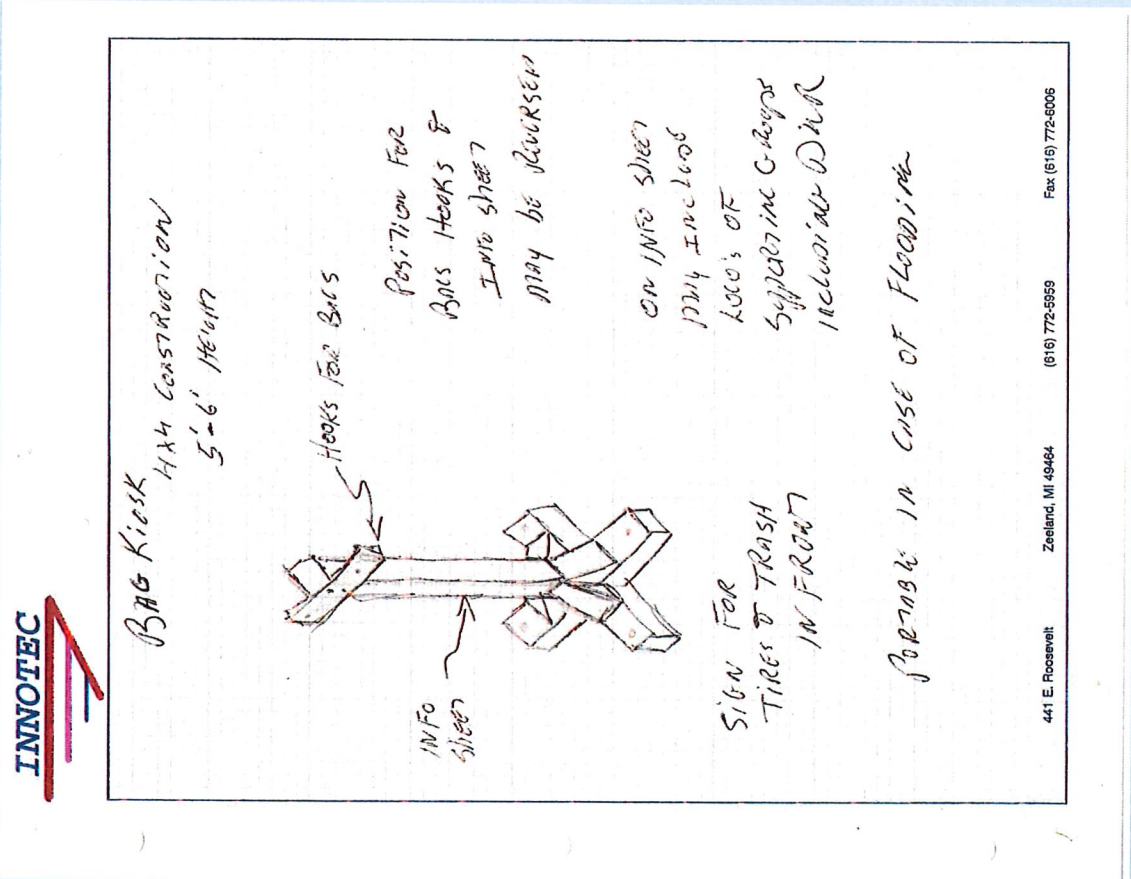 INNOTEC
BAG KIOSK
4x4 CONSTRUCTION
5'-6' HEIGHT
HOOKS FOR BAGS
POSITION FOR
BAGS HOOKS &
INFO SHEET
MAY BE REVERSED
INFO
SHEET
ON INFO SHEET
MAY INCLUDE
LOGO'S OF
SUPPORTING GROUPS
INCLUDING DNR
SIGN FOR
TIRES & TRASH
IN FRONT
PORTABLE IN CASE OF FLOODING
441 E. Roosevelt Zeeland, MI 49464 (616) 772-5959 Fax (616) 772-6006